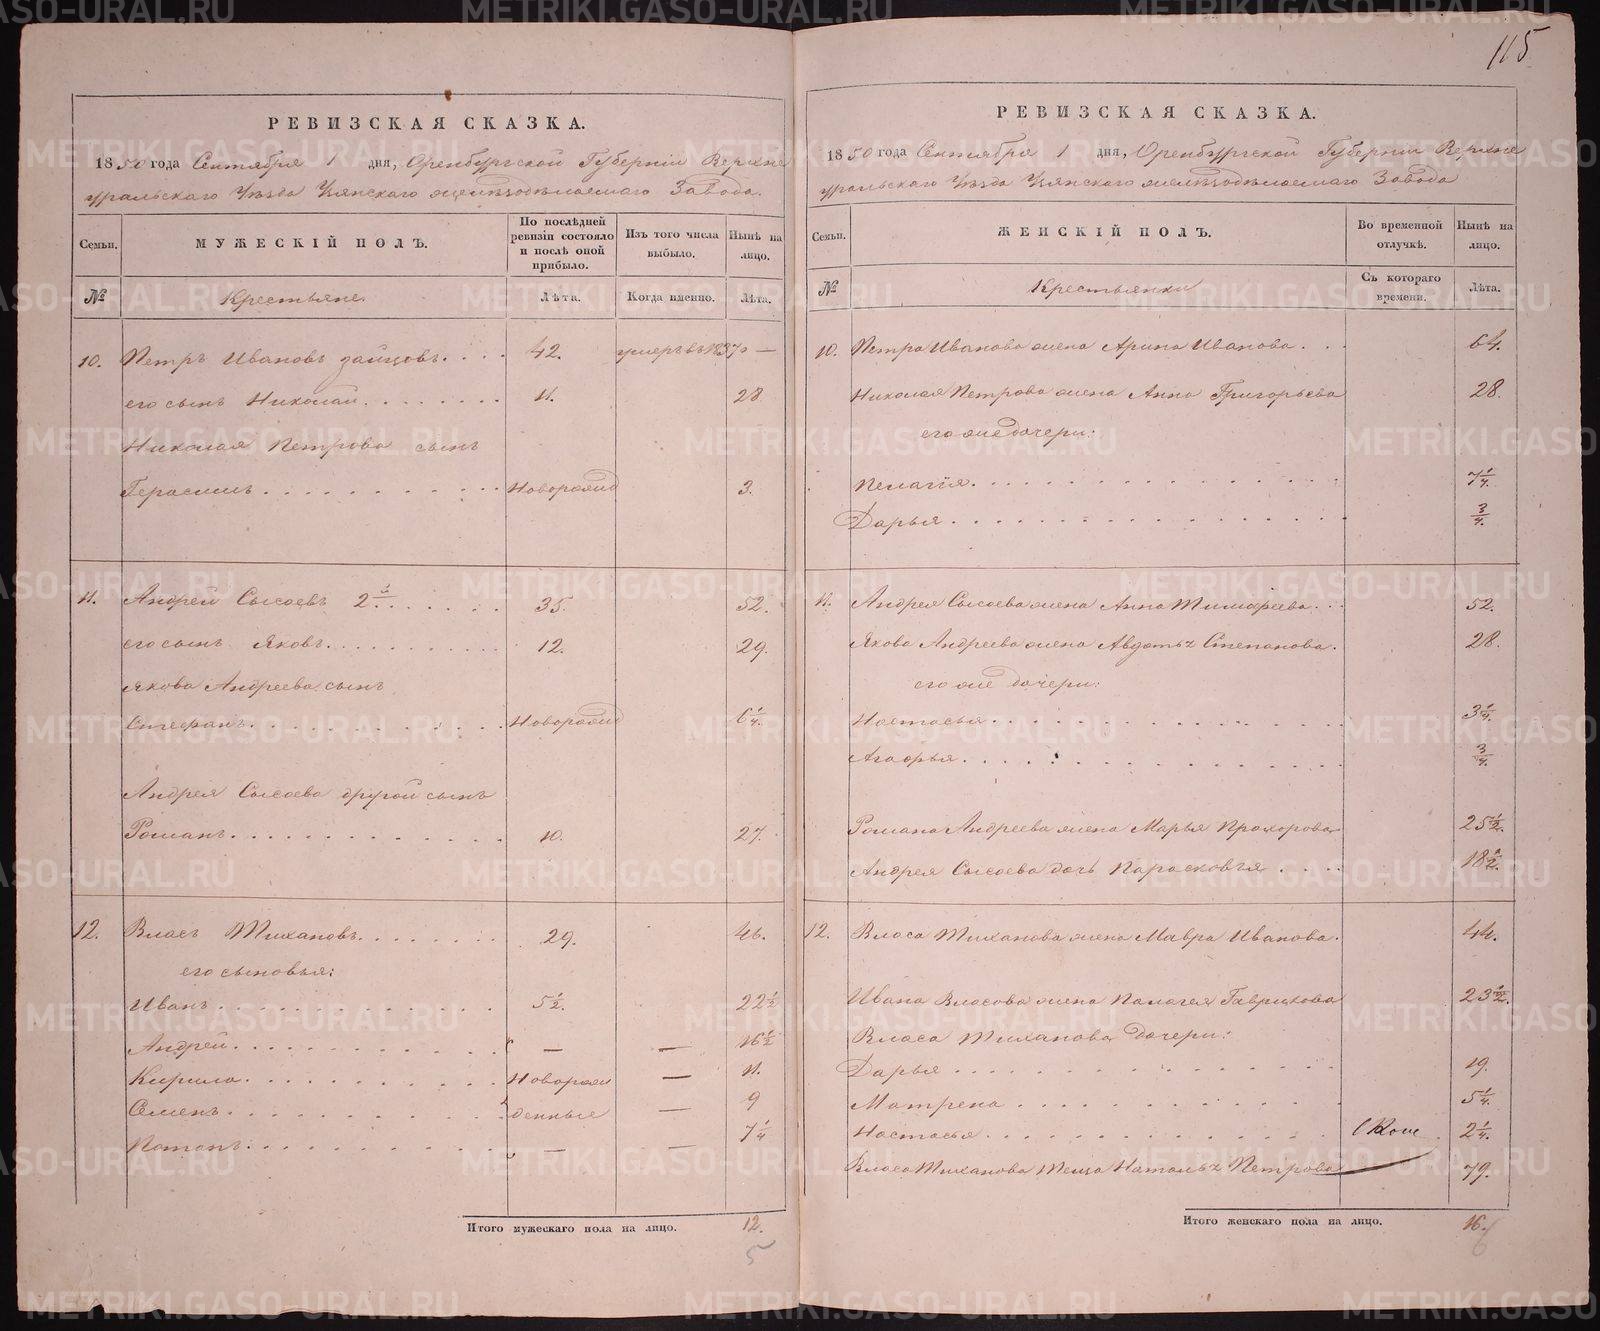 115
РЕВИЗСКАЯ СКАЗКА.
1850 года Сентября 1 дня, Оренбургской Губерніи Верхне
уральскаго Уѣзда Узянскаго желѣзодѣлаемаго Завода.
Семьи.
МУЖЕСКІЙ ПОЛЪ.
По послѣдней ревизіи состояло и послѣ оной прибыло.
Изъ того числа выбыло.
Нынѣ на лицо.
№
Крестьяне.
Лѣта.
Когда именно.
Лѣта.
10. Петръ Ивановъ Зайцовъ. 42. умеръ въ 1837 —
его сынъ Николай 11. 28
Николая Петрова сынъ
Герасимъ Новорожд 3.
11. Андрей Сысоевъ 2й 35. 52.
его сынъ Яковъ. 12. 29.
Якова Андреева сынъ
Стефанъ. Новорожд 6 1/4.
Андрея Сысоева другой сынъ
Романъ. 10. 27.
12. Власъ Тихановъ. 29. 46.
его сыновья:
Иванъ. 5 1/2. 22 1/2
Андрей. — — 16 1/2
Кирило. Новорож — 11.
Семенъ. денные — 9
Потапъ. — — 7 1/4
Итого мужескаго пола на лицо. 12.
5
РЕВИЗСКАЯ СКАЗКА.
1850 года Сентября 1 дня, Оренбургской Губерніи Верхне
уральскаго Уѣзда Узянскаго желѣзодѣлаемаго Завода
Семьи.
ЖЕНСКІЙ ПОЛЪ.
Во временной отлучкѣ.
Нынѣ на лицо.
№
Крестьянки
Съ котораго времени.
Лѣта.
10. Петра Иванова жена Арина Иванова. 64.
Николая Петрова жена Анна Григорьева 28.
его же дочери:
Пелагія. 7 1/4.
Дарья. 3/4.
11. Андрея Сысоева жена Анна Тимофеева. 52.
Якова Андреева жена Авдотья Степанова. 28.
его же дочери:
Настасья. 3 1/4.
Агафья. 3/4.
Романа Андреева жена Марья Прохорова 25 1/2.
Андрея Сысоева дочь Парасковья 18 1/2.
12. Власа Тиханова жена Мавра Иванова. 44.
Ивана Власова жена Палагея Гаврилова 23 1/2.
Власа Тиханова дочери:
Дарья 19.
Матрена 5 1/4.
Настасья. 2 1/4.
Власа Тиханова теща Наталья Петрова 79.
Итого женскаго пола на лицо. 16.
6
METRIKI.GASO-URAL.RU